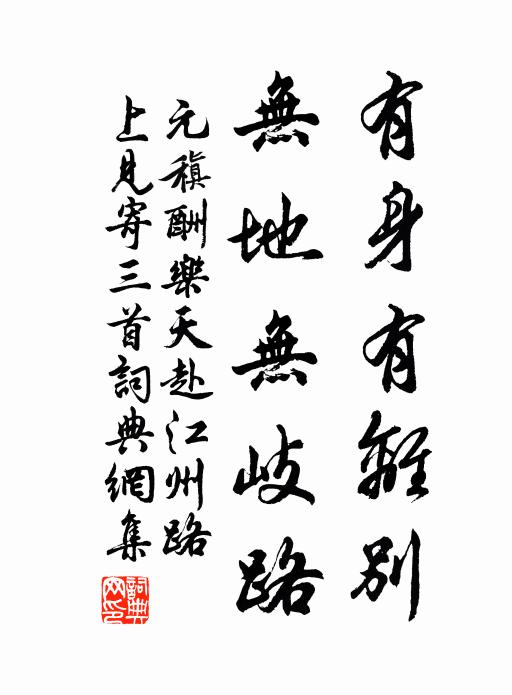 有身有離別
無地無岐路
元稹酬樂天赴江州路
上見寄三首詞典網集
詞典
网印